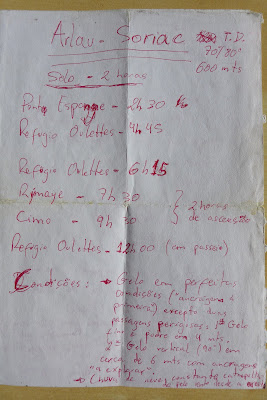 Arlau - Soriac T.D.
70º/90º
600 mts
Solo - 2 horas
Ponte Espagne - 2h30
Refogio Oulettes - 4h45
Refogio Oulettes - 6h15
Rimaye - 7h30
Cimo - 9h30
2 horas
de ascensão
Refogio Oulettes - 12h00 (com passeio)
Condições: → Gelo em perfeitas
condições ("ancoragens à
primeira") excepto duas
passagens perigosas: 1ª Gelo
fino e podre em 4 mts.
2ª Gelo vertical (90º) em
cerca de 6 mts com ancoragens
"a explorar".
→ Chuva de neve constante
pelo vento desde a